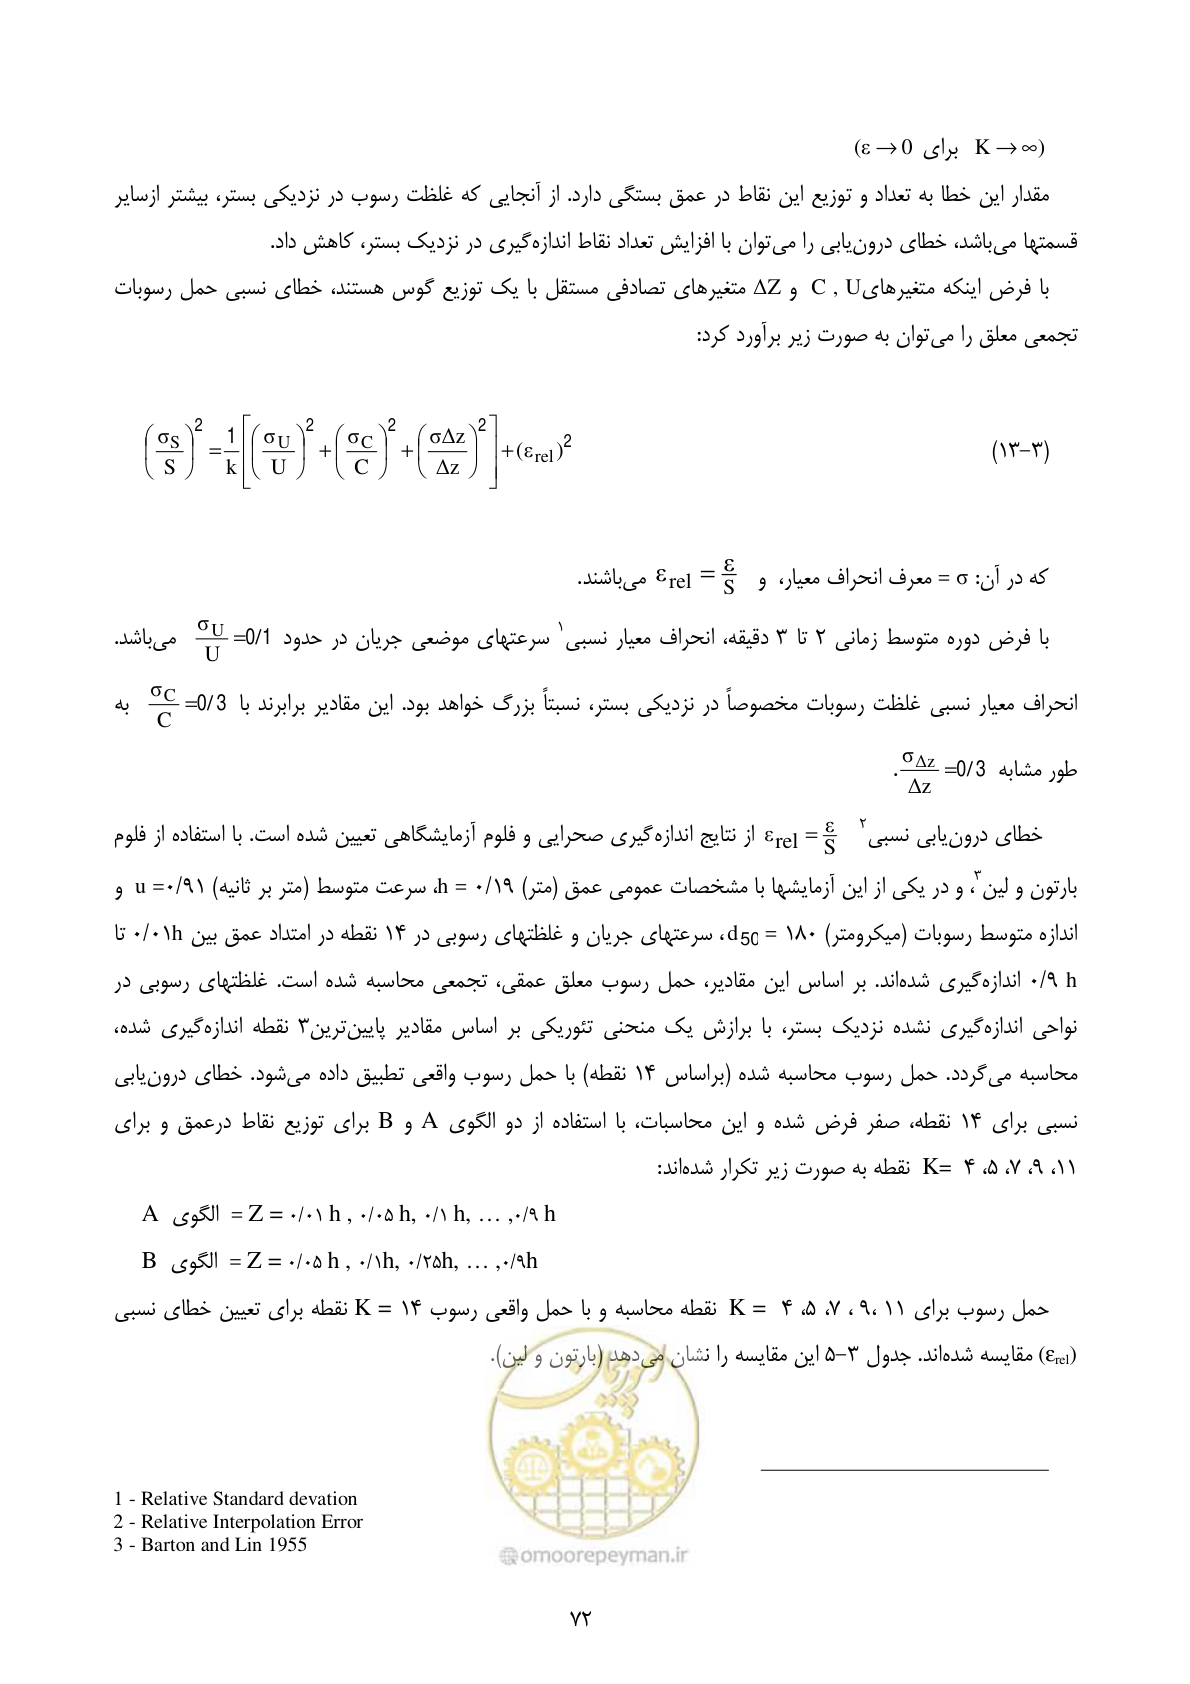 (ε → 0 برای K → ∞)
مقدار این خطا به تعداد و توزیع این نقاط در عمق بستگی دارد. از آنجایی که غلظت رسوب در نزدیکی بستر، بیشتر ازسایر
قسمتها می‌باشد، خطای درون‌یابی را می‌توان با افزایش تعداد نقاط اندازه‌گیری در نزدیک بستر، کاهش داد.
با فرض اینکه متغیرهای C , U و ΔZ متغیرهای تصادفی مستقل با یک توزیع گوس هستند، خطای نسبی حمل رسوبات
تجمعی معلق را می‌توان به صورت زیر برآورد کرد:
(۳-۱۳) (σS/S)² = 1/k [(σU/U)² + (σC/C)² + (σΔz/Δz)²] + (εrel)²
که در آن: σ = معرف انحراف معیار، و εrel = ε/S می‌باشند.
با فرض دوره متوسط زمانی ۲ تا ۳ دقیقه، انحراف معیار نسبی۱ سرعتهای موضعی جریان در حدود σU/U =0/1 می‌باشد.
انحراف معیار نسبی غلظت رسوبات مخصوصاً در نزدیکی بستر، نسبتاً بزرگ خواهد بود. این مقادیر برابرند با σC/C =0/3 به
طور مشابه σΔz/Δz =0/3.
خطای درون‌یابی نسبی۲ εrel = ε/S از نتایج اندازه‌گیری صحرایی و فلوم آزمایشگاهی تعیین شده است. با استفاده از فلوم
بارتون و لین۳، و در یکی از این آزمایشها با مشخصات عمومی عمق (متر) h = ۰/۱۹، سرعت متوسط (متر بر ثانیه) u =۰/۹۱ و
اندازه متوسط رسوبات (میکرومتر) d50 = ۱۸۰، سرعتهای جریان و غلظتهای رسوبی در ۱۴ نقطه در امتداد عمق بین ۰/۰۱h تا
۰/۹ h اندازه‌گیری شده‌اند. بر اساس این مقادیر، حمل رسوب معلق عمقی، تجمعی محاسبه شده است. غلظتهای رسوبی در
نواحی اندازه‌گیری نشده نزدیک بستر، با برازش یک منحنی تئوریکی بر اساس مقادیر پایین‌ترین۳ نقطه اندازه‌گیری شده،
محاسبه می‌گردد. حمل رسوب محاسبه شده (براساس ۱۴ نقطه) با حمل رسوب واقعی تطبیق داده می‌شود. خطای درون‌یابی
نسبی برای ۱۴ نقطه، صفر فرض شده و این محاسبات، با استفاده از دو الگوی A و B برای توزیع نقاط درعمق و برای
K= ۴ ،۵ ،۷ ،۹ ،۱۱ نقطه به صورت زیر تکرار شده‌اند:
الگوی A = Z = ۰/۰۱ h , ۰/۰۵ h, ۰/۱ h, … ,۰/۹ h
الگوی B = Z = ۰/۰۵ h , ۰/۱h, ۰/۲۵h, … ,۰/۹h
حمل رسوب برای K = ۴ ،۵ ،۷ ،۹ ،۱۱ نقطه محاسبه و با حمل واقعی رسوب K = ۱۴ نقطه برای تعیین خطای نسبی
(εrel) مقایسه شده‌اند. جدول ۳-۵ این مقایسه را نشان می‌دهد (بارتون و لین).
1 - Relative Standard devation
2 - Relative Interpolation Error
3 - Barton and Lin 1955
امور پیمان
@omoorepeyman.ir
۷۲